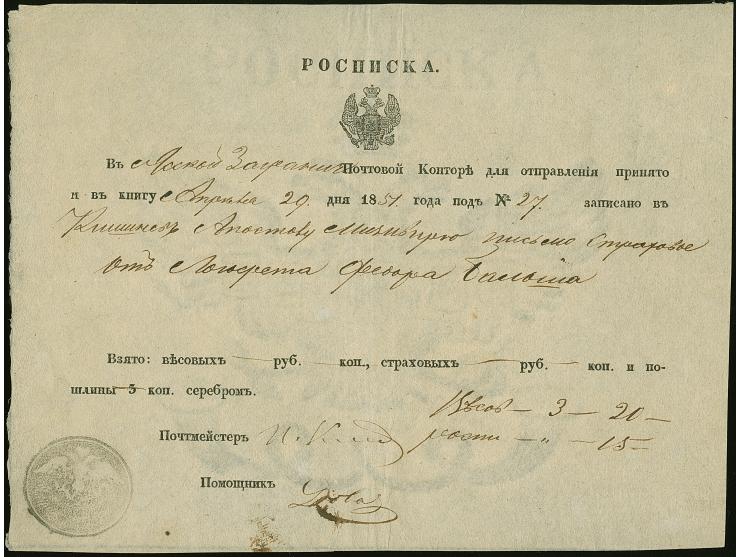 РОСПИСКА.
Въ Яской Заграничн Почтовой Конторѣ для отправленія принято
и въ книгу Апрѣля 29. дня 1851. года подъ № 27. записано въ
Кишиневъ Апостолу письмо страховое
Отъ Логофета Федора Бальша
Взято: вѣсовыхъ — руб. — коп., страховыхъ — руб. — коп. и по-
шлины 5 коп. серебромъ.
Вѣсов — 3 — 20 —
Почтмейстеръ — „ — 15 —
Помощникъ